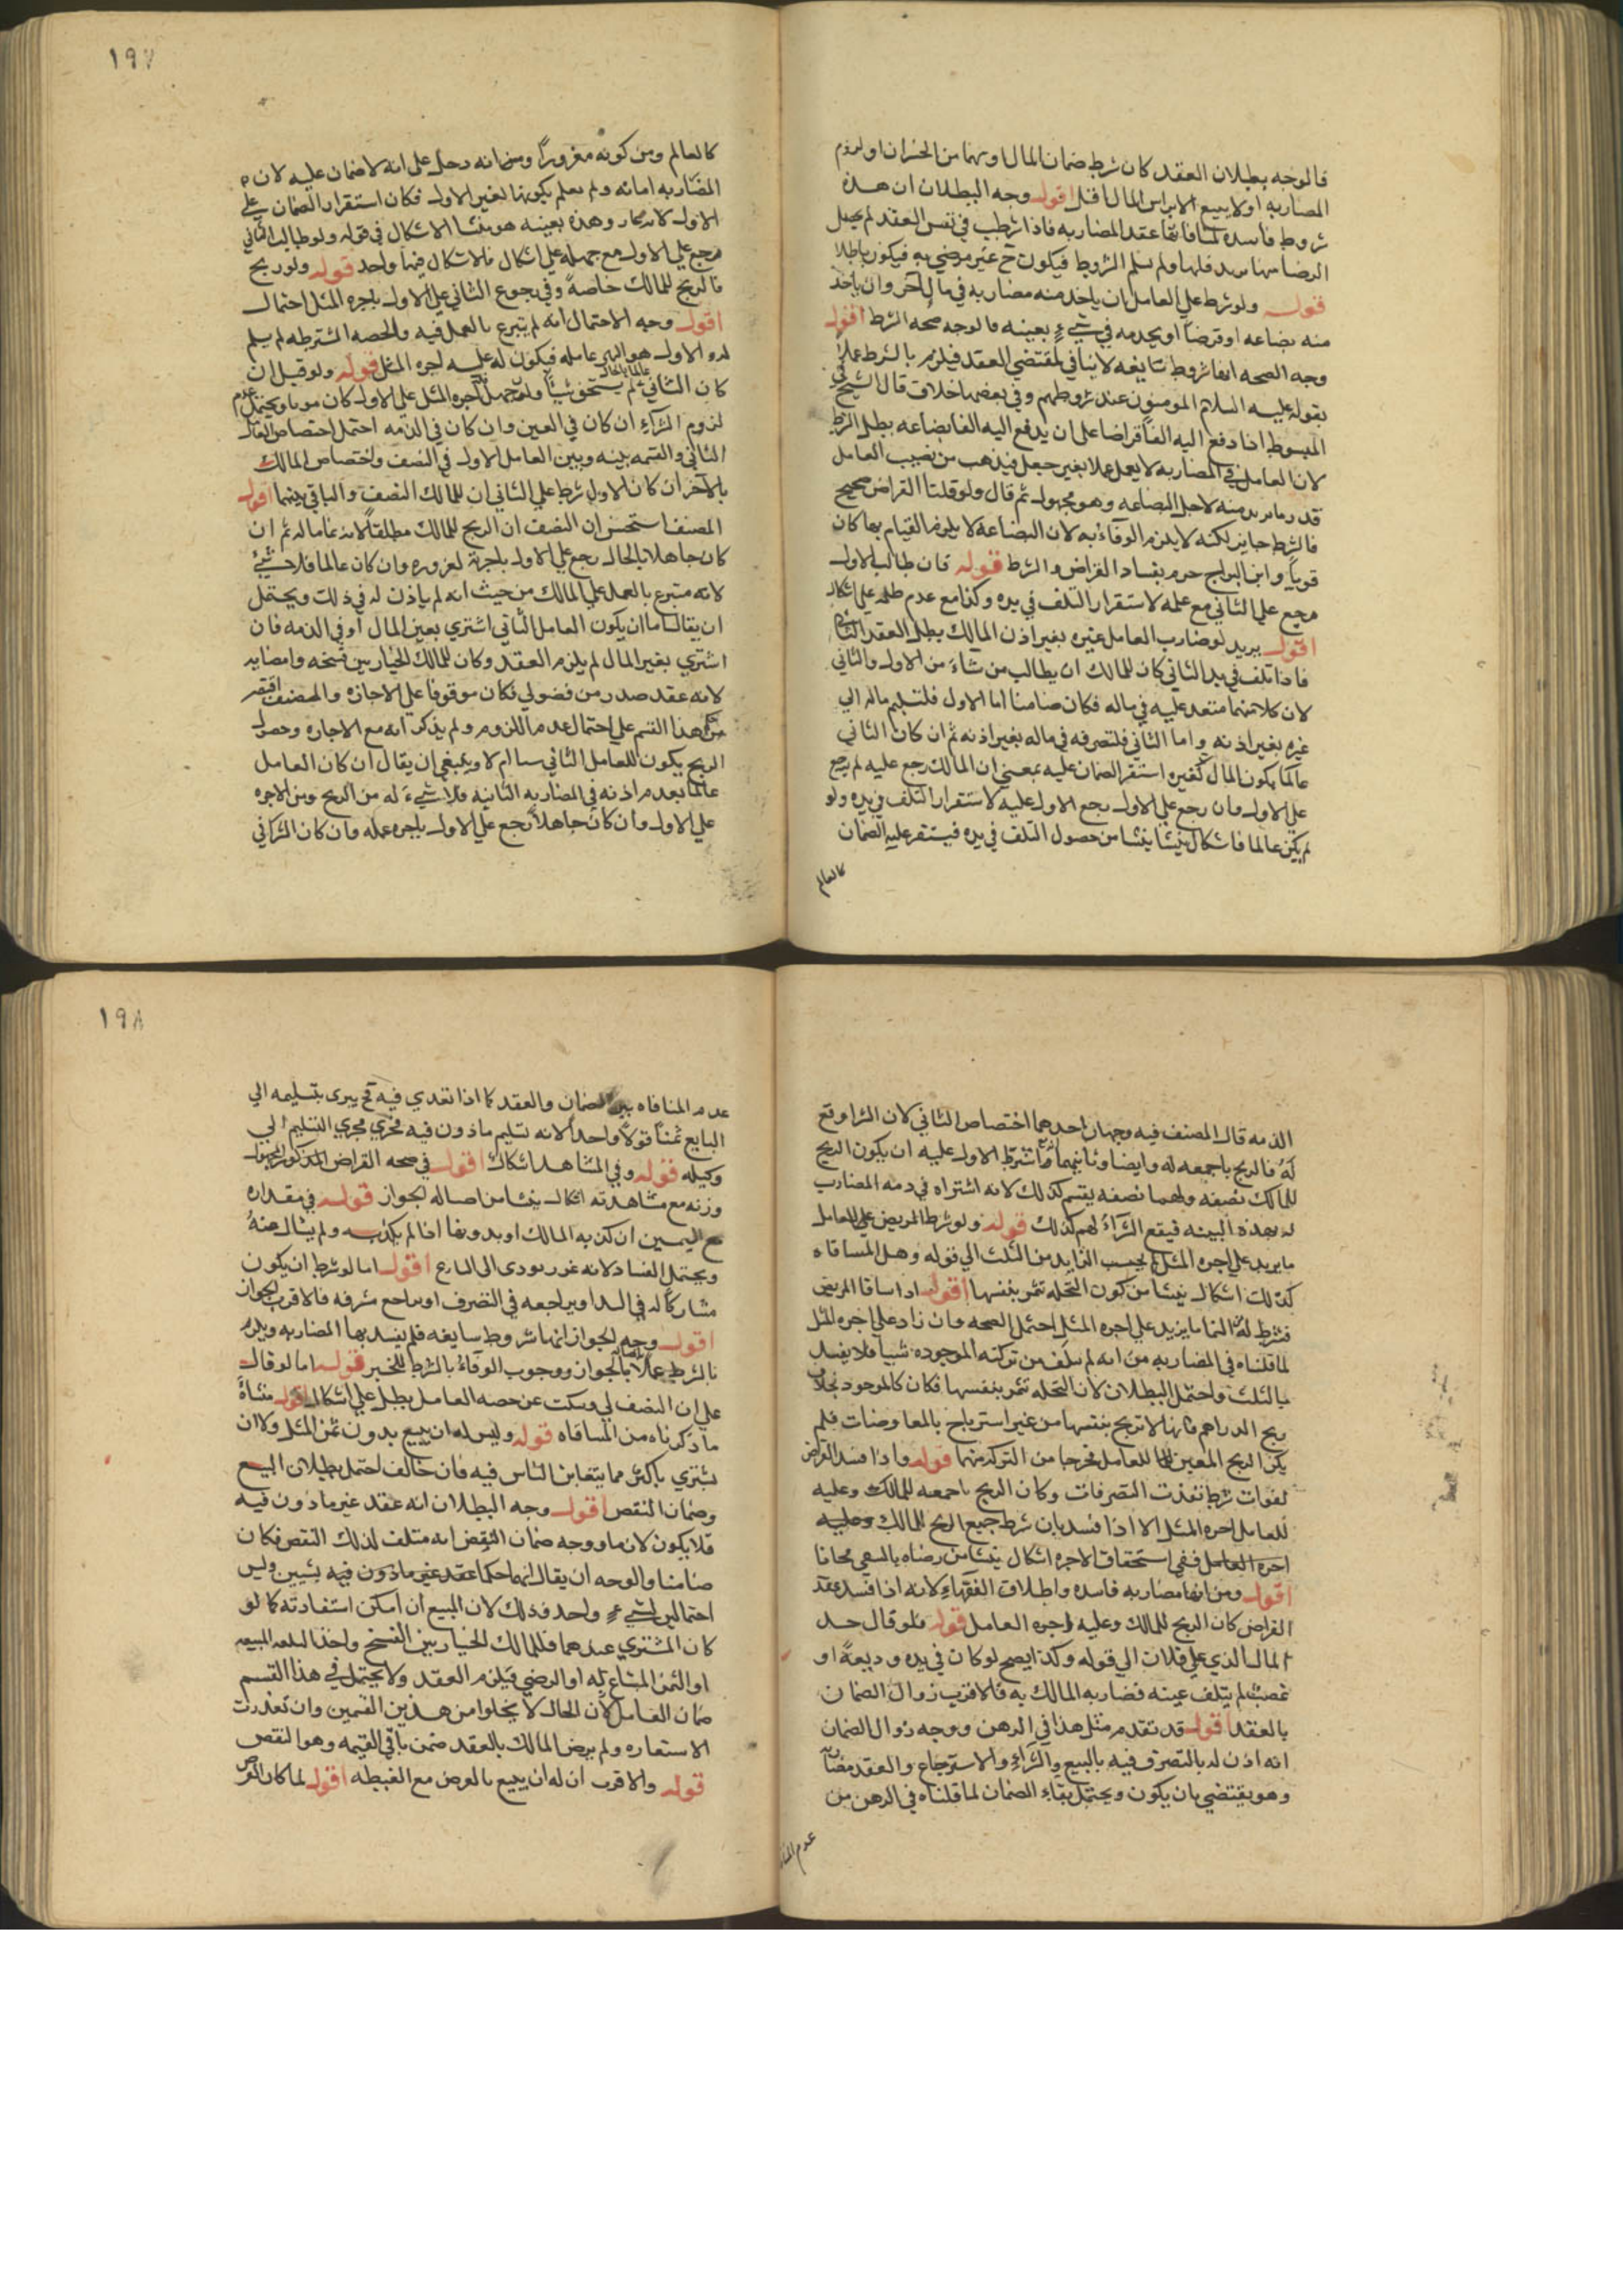 فالوجه بطلان العقد كان شرط ضمان المال او سهما من الخسران او لزوم
المضاربه اولا يبيع الا براس المال اقل اقول وجه البطلان ان هذه
شروط فاسده لمنافاتها عقد المضاربه فاذا شرطت في نفس العقد لم يحصل
الرضا منهما بدونها ولم يسلم الشروط فيكون ح غير مرضي به فيكون باطلا
قوله ولو شرط علي العامل ان ياخذ منه مضاربه في مال آخر وان ياخذ
منه بضاعه او قرضا او يخدمه في شيء بعينه فالوجه صحه الشرط اقول
وجه الصحه انها شروط سايغه لا ينافي لمقتضي العقد فيلزم بالشرط عملا
بقوله عليه السلام المومنون عند شروطهم وفي بعضها خلاف قال الشيخ في
المبسوط اذا دفع اليه الفا قراضا علي ان يدفع اليه الفا بضاعه بطل الشرط
لان العامل في المضاربه لا يعمل عملا بغير جعل فيذهب من نصيب العامل
قدر ما يزيد منه لاجل البضاعه وهو مجهول ثم قال ولو قلنا القراض صحيح
فالشرط جايز لكنه لا يلزم الوفاء به لان البضاعة لا يلزم القيام بها كان
قويا وابن البراج جزم بفساد القراض والشرط قوله فان طالب الاول
رجع علي الثاني مع علمه لاستقرار التلف في يده وكذا مع عدم علمه علي اشكال
اقول يريد لو ضارب العامل غيره بغير اذن المالك بطل العقد الثاني
فاذا تلف في يد الثاني كان للمالك ان يطالب من شاء من الاول والثاني
لان كلا منهما متعد عليه في ماله فكان ضامنا اما الاول فلتسليم ماله الي
غيره بغير اذنه واما الثاني فلتصرفه في ماله بغير اذنه ثم ان كان الثاني
عالما بكون المال لغيره استقر الضمان عليه بمعني ان المالك رجع عليه لم يرجع
علي الاول وان رجع علي الاول رجع الاول عليه لاستقرار التلف في يده ولو
لم يكن عالما فاشكال ينشا ينشا من حصول التلف في يده فيستقر عليه الضمان
كالعالم
١٩٧
كالعالم ومن كونه مغرورا ومن انه دخل علي انه لا ضمان عليه لان
المضاربه امانه ولم يعلم بكونها لغير الاول فكان استقرار الضمان علي
الاول لانه غار وهذه بعينه هو منشا الاشكال في قوله ولو طالب الثاني
رجع علي الاول مع جهله علي اشكال فالاشكال فيها واحد قوله ولو ربح
فالربح للمالك خاصة وفي رجوع الثاني علي الاول باجره المثل احتمال
اقول وجه الاحتمال انه لم يتبرع بالعمل فيه والحصه المشترطه لم يسلم
له والاول هو الذي عامله فيكون له عليه اجره المثل قوله ولو قيل ان
كان الثاني عالما بالحال لم يستحق شيئا وان جهل فله اجره المثل علي الاول كان وجها ويحتمل عدم
لزوم الشراء ان كان في العين وان كان في الذمه احتمل اختصاص العامل
الثاني والقسمه بينه وبين العامل الاول في النصف واختصاص المالك
بالآخر ان كان الاول شرط علي الثاني ان للمالك النصف والباقي بينهما اقول
المصنف استحسن ان النصف ان الربح للمالك مطلقا لانه نما ماله ثم ان
كان جاهلا بالحال رجع علي الاول باجرة لغروره وان كان عالما فلا شيء
لانه متبرع بالعمل علي المالك من حيث انه لم ياذن له في ذلك ويحتمل
ان يقال اما ان يكون العامل الثاني اشتري بعين المال او في الذمه فان
اشتري بغير المال لم يلزم العقد وكان للمالك الخيار بين فسخه وامضايه
لانه عقد صدر من فضولي فكان موقوفا علي الاجازه والمصنف اقتصر
من هذا القسم علي احتمال عدم اللزوم ولم يذكر انه مع الاجازه وحصول
الربح يكون للعامل الثاني شيا ام لا وينبغي ان يقال ان كان العامل
عالما بعدم اذنه في المضاربه الثانيه فلا شيء له من الربح ومن الاجره
علي الاول وان كان جاهلا رجع علي الاول باجره عمله وان كان الشرا في
الذمه قال المصنف فيه وجهان احدهما اختصاص الثاني لان الشرا وقع
له فالربح باجمعه له وايضا وثانيهما ما اشترط الاول عليه ان يكون الربح
للمالك نصفه ولهما نصفه يقسم كذلك لانه اشتراه في ذمه المضارب
له بهذه البينه فيقع الشراء لهم كذلك قوله ولو شرط المريض علي للعامل
ما يزيد علي اجره المثل لم يحسب الزايد من الثلث الي قوله وهل المساقاه
كذلك اشكال ينشا من كون النخله تثمر بنفسها اقول اذا ساقا المريض
فشرط له النما ما يزيد علي اجره المثل احتمل الصحه وان زاد علي اجره المثل
لما قلناه في المضاربه من انه لم يتلف من تركته الموجوده شييا فلا يفسد
بالثلث واحتمل البطلان لان النخله تثمر بنفسها فكان كالموجود بخلاف
ربح الدراهم فانها لا تربح بنفسها من غير استرباح بالمعاوضات فلم
يكن الربح المعين للعامل مخرجا من التركه منها قوله واذا فسد القراض
لفوات شرط نفذت التصرفات وكان الربح باجمعه للمالك وعليه
للعامل اجره المثل الا اذا فسد بان شرط جميع الربح للمالك وعليه
اجره العامل ففي استحقاق الاجره اشكال ينشا من رضاه بالسعي مجانا
اقول ومن انها مضاربه فاسده واطلاق الفقهاء لانه اذا فسد عقد
القراض كان الربح للمالك وعليه اجره العامل قوله فلو قال خذ
المال الذي علي فلان الي قوله وكذا يصح لو كان في يده وديعة او
غصب لم يتلف عينه فضاربه المالك به فالاقرب زوال الضمان
بالعقد اقول قد تقدم مثل هذا في الرهن ووجه زوال الضمان
انه اذن له بالتصرف فيه بالبيع والشراء والاسترجاع والعقد مضاربه
وهو يقتضي بان يكون ويحتمل بقاء الضمان لما قلناه في الرهن من
عدم المنا
١٩٨
عدم المنافاه بين الضمان والعقد كما اذا تعدي فيه ثم يبرى بتسليمه الي
البايع ثمنا قولا واحدا لانه تسليم ماذون فيه فجري مجري التسليم الي
وكيله قوله وفي المشاهد اشكال اقول في صحه القراض المذكور المجهول
وزنه مع مشاهدته اشكال ينشا من اصاله الجواز قوله في مقداره
مع اليمين ان كذبه المالك او بدونها اذا لم يكذبه ولم يسال منهُ
ويحتمل الفساد لانه غرر يودى الى التنازع اقول اما لو شرط ان يكون
مشاركا له في اليد او يراجعه في التصرف او يراجع مشرفه فالاقرب الجواز
اقول وجه الجواز انها شروط سايغه فلم يفسد بها المضاربه ويلزم
بالشرط عملا بالجواز ووجوب الوفاء بالشرط للخبر قوله اما لو قال
علي ان النصف لي وسكت عن حصه العامل بطل علي اشكال اقول منشاه
ما ذكرناه من المساقاه قوله وليس له ان يبيع بدون ثمن المثل ولا ان
يشتري باكثر مما يتغابن الناس فيه فان خالف احتمل بطلان البيع
وضمان النقص اقول وجه البطلان انه عقد غير ماذون فيه
فلا يكون لازما ووجه ضمان النقص انه متلف لذلك النقص فكان
ضامنا والوجه ان يقال انهما حكما عقد غير ماذون فيه بشيين وليس
احتمالين لشيء واحد وذلك لان المبيع ان امكن استفادته كما لو
كان المشتري عندهما فللمالك الخيار بين الفسخ واخذ السلعه المبيعه
او الثمن المتاع له او الرضي فيلزم العقد ولا يحتمل في هذا القسم
ضمان العامل لان الحال لا يخلوا من هذين القسمين وان تعذرت
الاستعاره ولم يرض المالك بالعقد ضمن باقي القيمه وهو النقص
قوله والاقرب ان له ان يبيع بالعرض مع الغبطه اقول لما كان الغرض